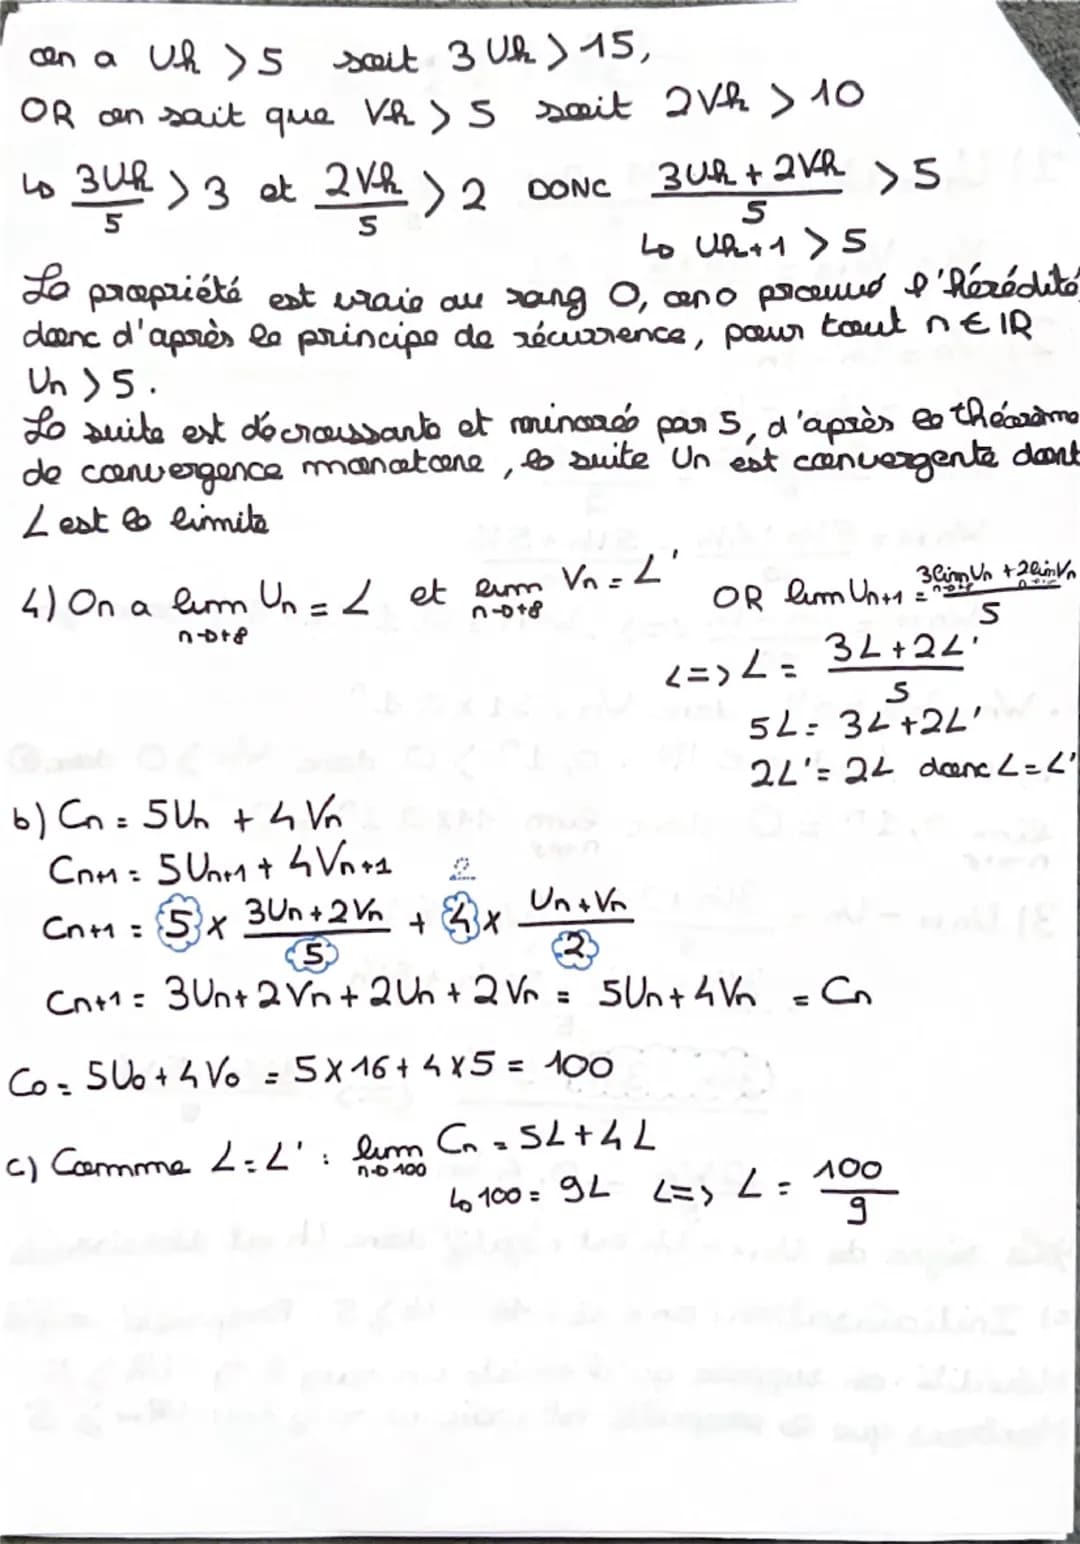 on a Uk > 5 soit 3Uk > 15,
OR on sait que Vk > 5 soit 2Vk > 10
↳ 3Uk/5 > 3 et 2Vk/5 > 2 DONC (3Uk + 2Vk)/5 > 5
↳ Uk+1 > 5
La propriété est vraie au rang 0, on a prouvé l'hérédité
donc d'après le principe de récurrence, pour tout n ∈ IR
Un > 5.
La suite est décroissante et minorée par 5, d'après le théorème
de convergence monotone, la suite Un est convergente dont
L est la limite
4) On a lim n→+∞ Un = L et lim n→+∞ Vn = L' OR lim Un+1 = (3 lim Un + 2 lim Vn)/5
<=> L = (3L + 2L')/5
5L = 3L + 2L'
2L' = 2L donc L = L'
b) Cn = 5Un + 4Vn
Cn+1 = 5Un+1 + 4Vn+1
Cn+1 = 5 × (3Un + 2Vn)/5 + 4 × (Un + Vn)/2
Cn+1 = 3Un + 2Vn + 2Un + 2Vn = 5Un + 4Vn = Cn
C0 = 5U0 + 4V0 = 5 × 16 + 4 × 5 = 100
c) Comme L = L' : lim n→100 Cn = 5L + 4L
↳ 100 = 9L <=> L = 100/9